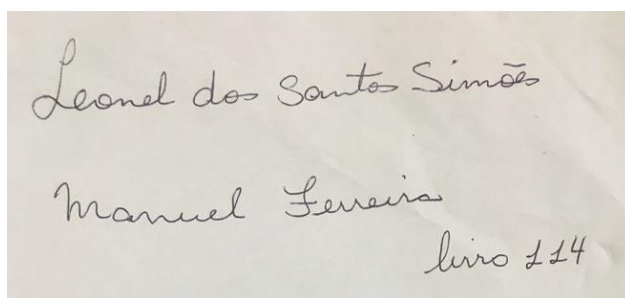 Leonel dos Santos Simões
Manuel Ferreira
livro 114